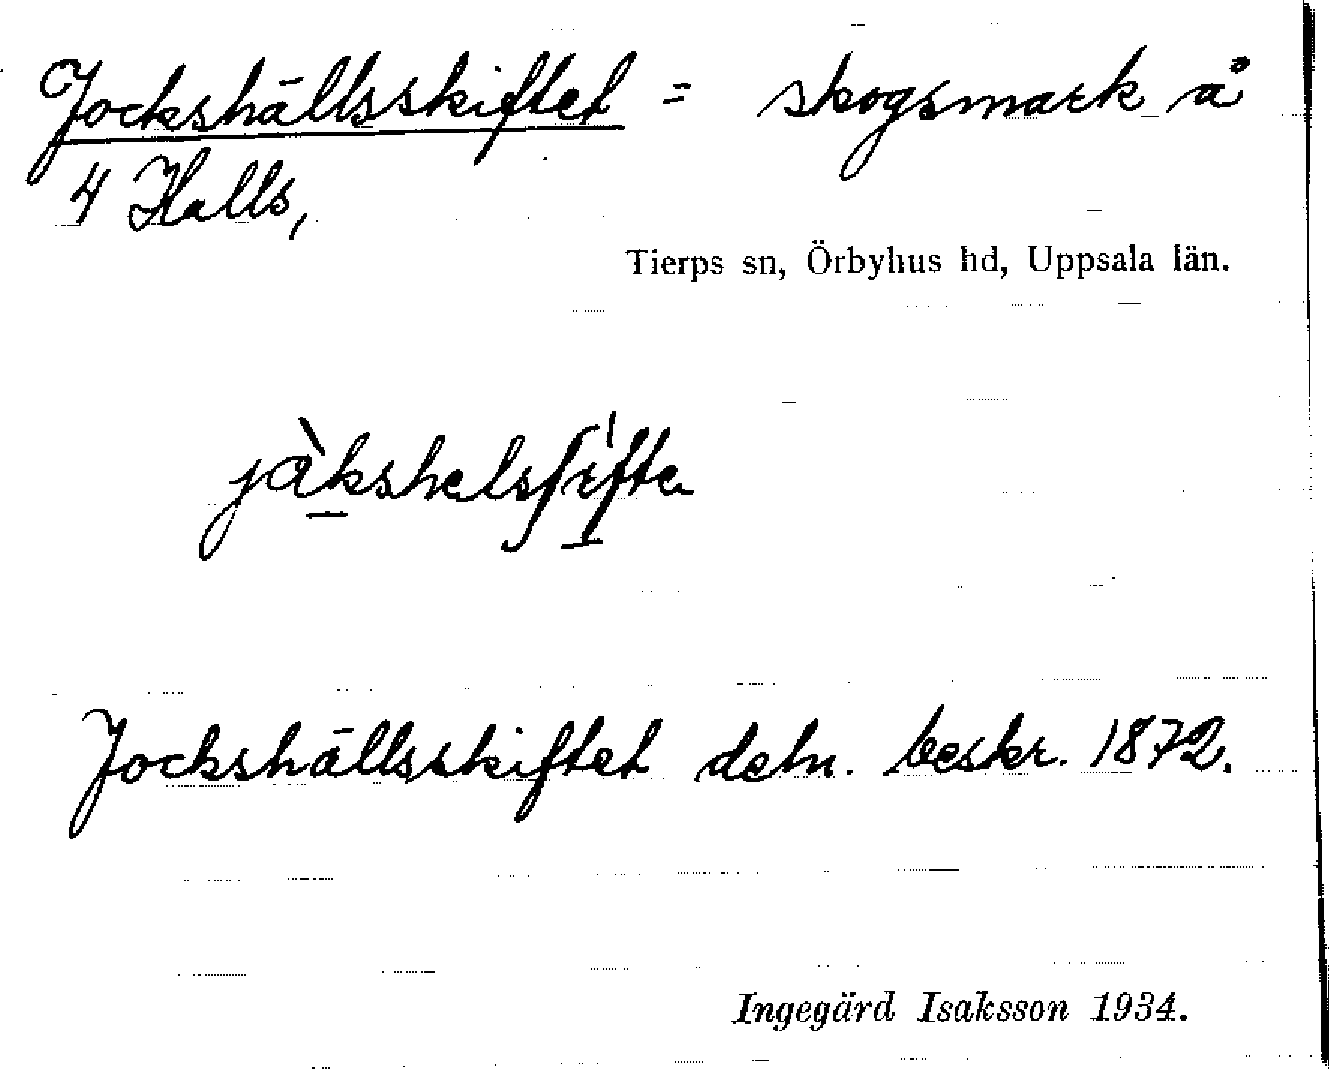 Jockshällsskiftet = skogsmark å
4 Halls,
Tierps sn, Örbyhus hd, Uppsala län.
jàkshelsʃífte
Jockshällsskiftet deln. beskr. 1872.
Ingegärd Isaksson 1934.